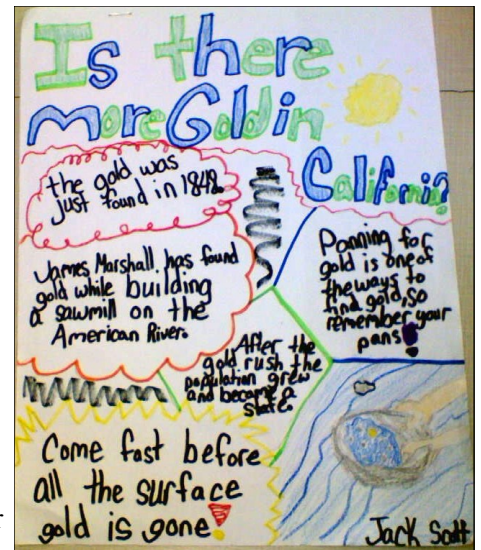 Is there
more Gold in
California?
the gold was
just found in 1848.
James Marshall has found
gold while building
a sawmill on the
American River.
Panning for
gold is one of
the ways to
find gold, so
remember your
pans!
After the
gold rush the
population grew
and became a
state.
Come fast before
all the surface
gold is gone!
Jack Scott